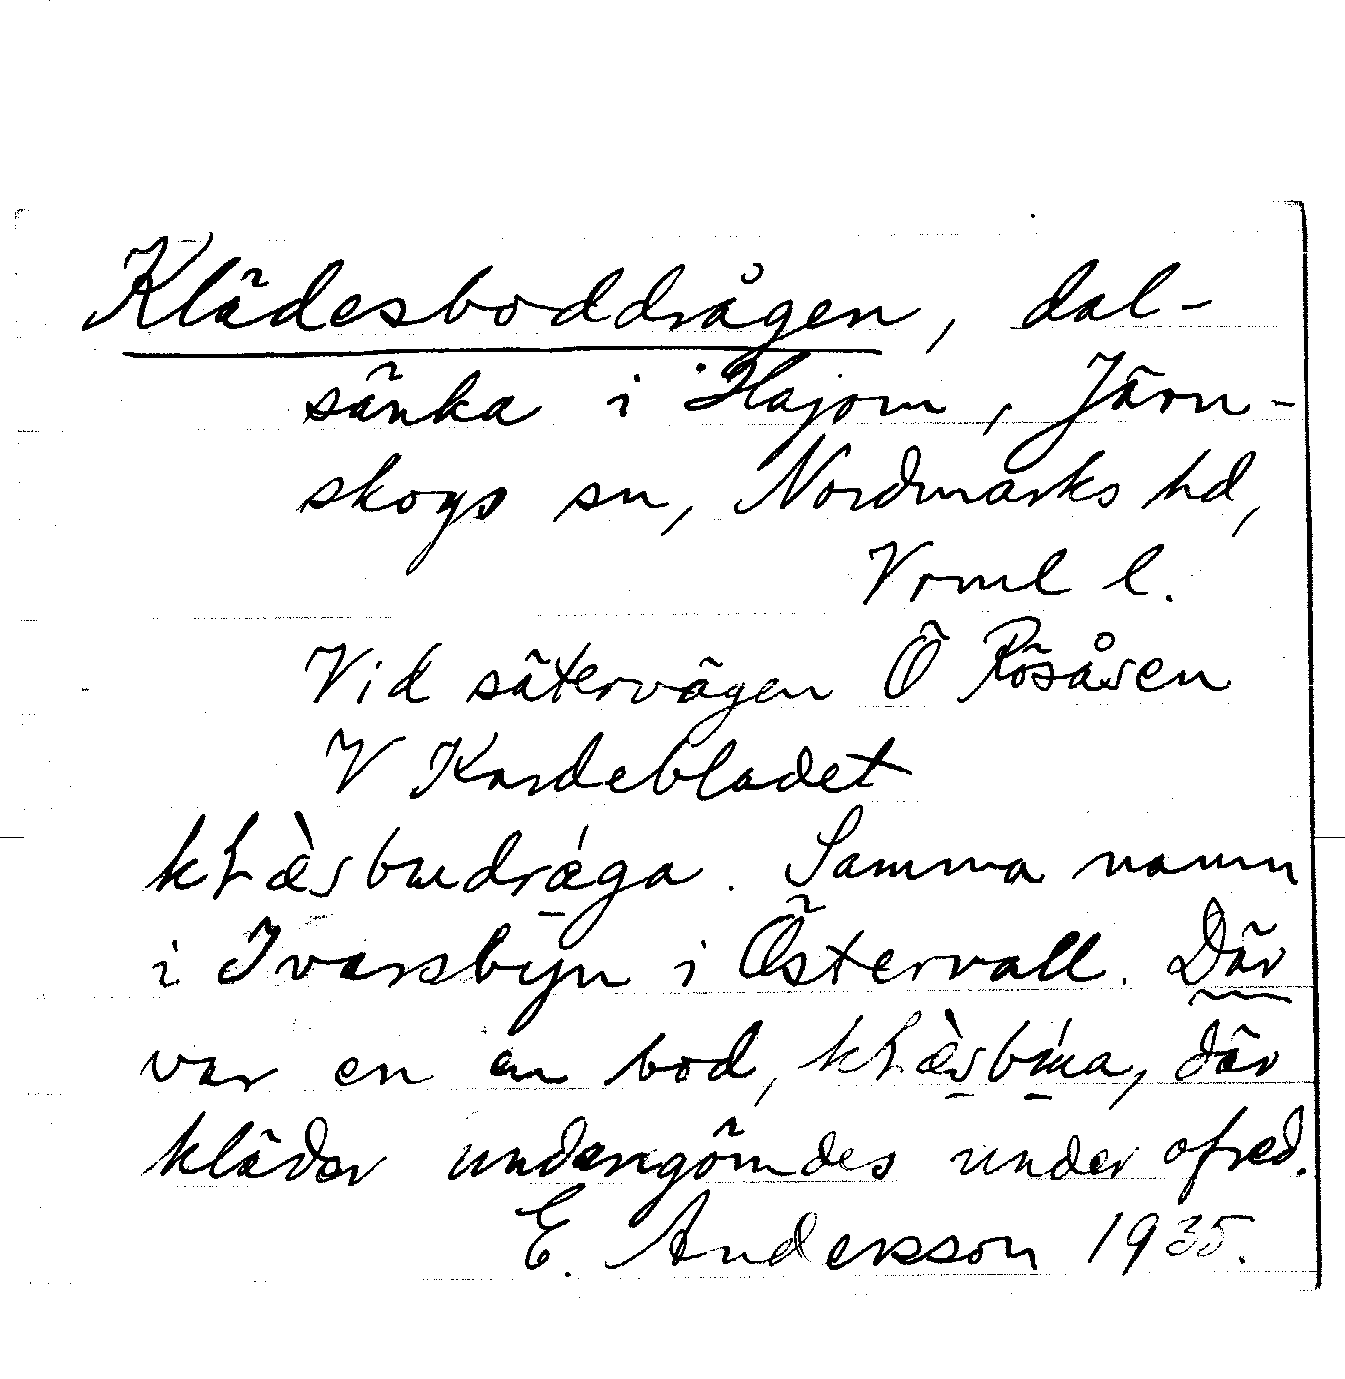 Klädesboddrågen, dal-
sänka i Hajom, Järn-
skogs sn, Nordmarks hd,
Vrml l.
Vid sätervägen Ö Rösåsen
V Kardebladet
Samma namn
i Ivarsbyn i Östervall. Där
var en en bod, där
kläder undangömdes under ofred.
E. Andersson 1935.